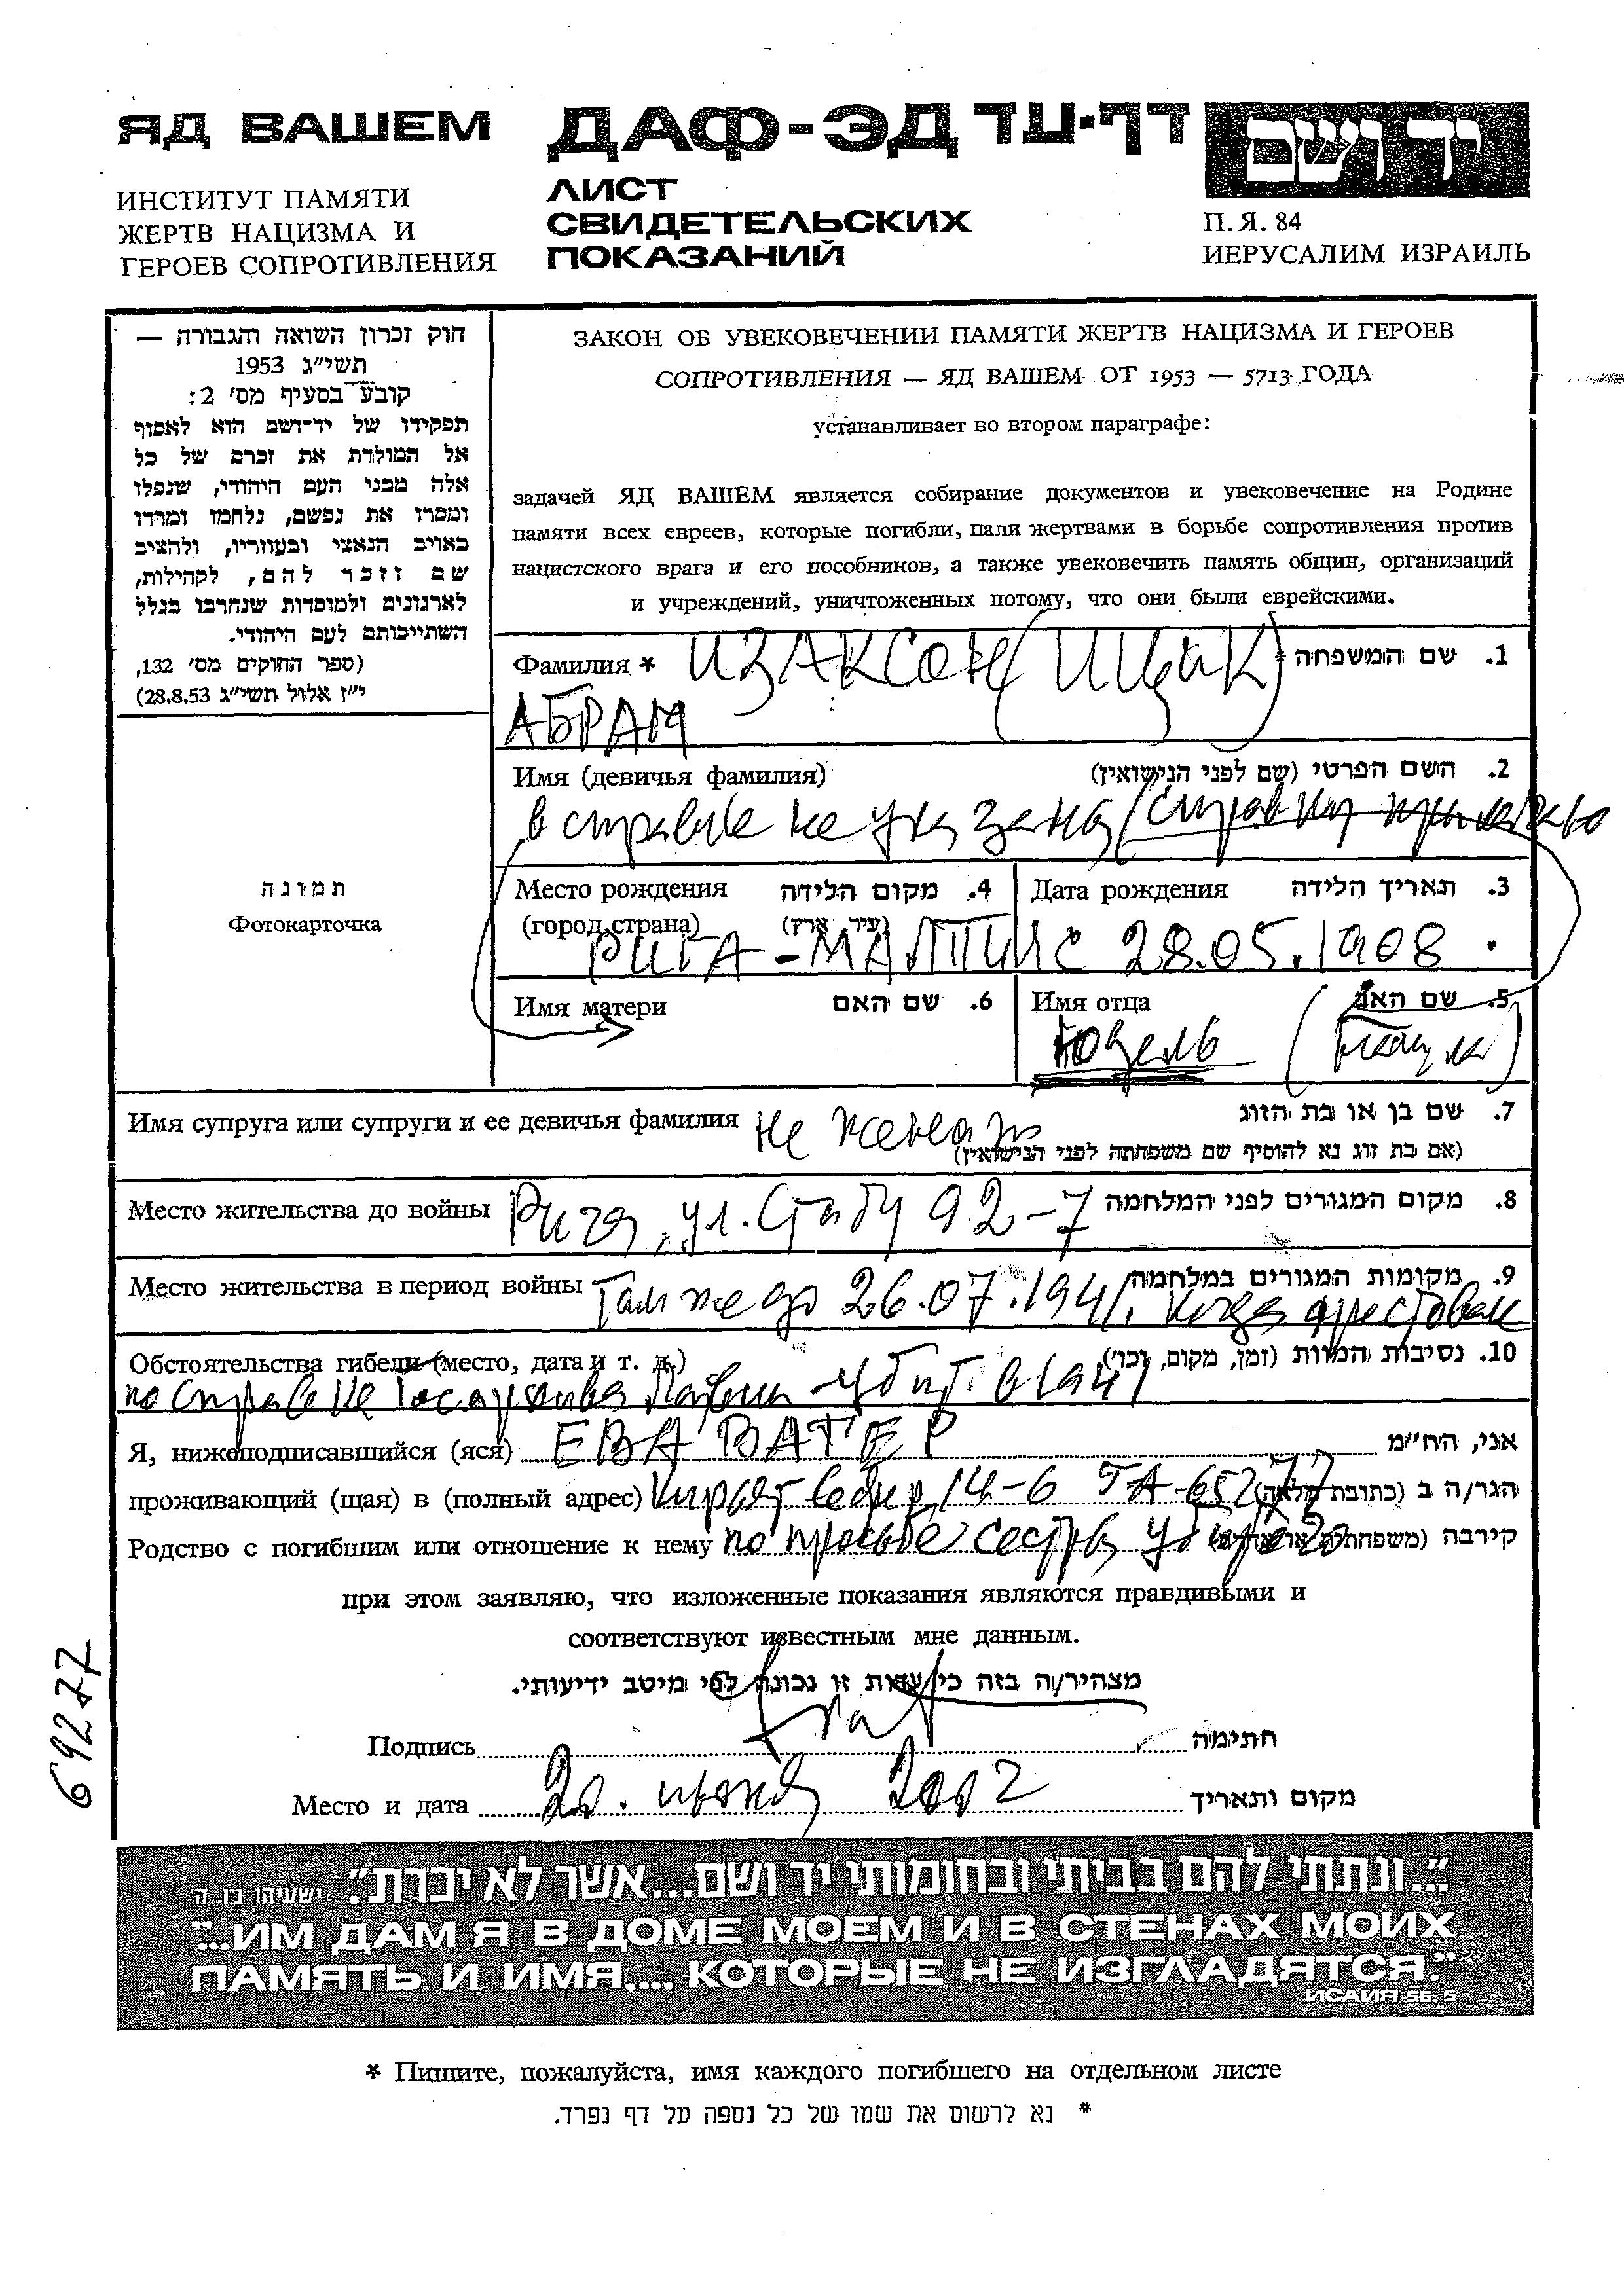 ЯД ВАШЕМ
ИНСТИТУТ ПАМЯТИ
ЖЕРТВ НАЦИЗМА И
ГЕРОЕВ СОПРОТИВЛЕНИЯ
ДАФ-ЭД דף-עד
ЛИСТ
СВИДЕТЕЛЬСКИХ
ПОКАЗАНИЙ
יד ושם
П. Я. 84
ИЕРУСАЛИМ ИЗРАИЛЬ
חוק זכרון השואה והגבורה —
תשי״ג 1953
קובע בסעיף מס׳ 2:
תפקידו של יד-ושם הוא לאסוף
אל המולדת את זכרם של כל
אלה מבני העם היהודי, שנפלו
ומסרו את נפשם, נלחמו ומרדו
באויב הנאצי ובעוזריו, ולהציב
שם וזכר להם, לקהילות,
לארגונים ולמוסדות שנחרבו בגלל
השתייכותם לעם היהודי.
(ספר החוקים מס׳ 132,
י״ז אלול תשי״ג 28.8.53)
תמונה
Фотокарточка
ЗАКОН ОБ УВЕКОВЕЧЕНИИ ПАМЯТИ ЖЕРТВ НАЦИЗМА И ГЕРОЕВ
СОПРОТИВЛЕНИЯ — ЯД ВАШЕМ ОТ 1953 — 5713 ГОДА
устанавливает во втором параграфе:
задачей ЯД ВАШЕМ является собирание документов и увековечение на Родине
памяти всех евреев, которые погибли, пали жертвами в борьбе сопротивления против
нацистского врага и его пособников, а также увековечить память общин, организаций
и учреждений, уничтоженных потому, что они были еврейскими.
Фамилия * ИЗАКСОН (ИЦИК) 1. שם המשפחה
АБРАМ
Имя (девичья фамилия) 2. השם הפרטי (שם לפני הנישואין)
в справке не указана (справку
Место рождения 4. מקום הלידה
(город, страна) (עיר, ארץ)
РИГА-МАЛПИЛС
Дата рождения 3. תאריך הלידה
28.05.1908.
Имя матери 6. שם האם
Имя отца 5. שם האב
Юдель
Имя супруга или супруги и ее девичья фамилия не женат 7. שם בן או בת הזוג
(אם בת זוג נא להוסיף שם משפחתה לפני הנישואין)
Место жительства до войны Рига, ул. Стабу 92-7 8. מקום המגורים לפני המלחמה
Место жительства в период войны Там же до 26.07.1941г. когда арестован 9. מקומות המגורים במלחמה
Обстоятельства гибели (место, дата и т. д.) 10. נסיבות המוות (זמן, מקום, וכו׳)
по справке Госархива Латвии - убит в 1941
Я, нижеподписавшийся (яся) ЕВА ВАТЕР אני, הח״מ
проживающий (щая) в (полный адрес) Кирят Сефер 14-6 ТА-65277 הגר/ה ב (כתובת מלאה)
Родство с погибшим или отношение к нему по просьбе сестры קירבה (משפחתית או אחרת)
при этом заявляю, что изложенные показания являются правдивыми и
соответствуют известным мне данным.
מצהיר/ה בזה כי עדות זו נכונה לפי מיטב ידיעותי.
Подпись חתימה
Место и дата 20. июня 2002 מקום ותאריך
69277
"...ונתתי להם בביתי ובחומותי יד ושם...אשר לא יכרת". ישעיהו נו..ה
"...ИМ ДАМ Я В ДОМЕ МОЕМ И В СТЕНАХ МОИХ
ПАМЯТЬ И ИМЯ,... КОТОРЫЕ НЕ ИЗГЛАДЯТСЯ."
ИСАИЯ 56. 5
* Пишите, пожалуйста, имя каждого погибшего на отдельном листе
* נא לרשום את שמו של כל נספה על דף נפרד.